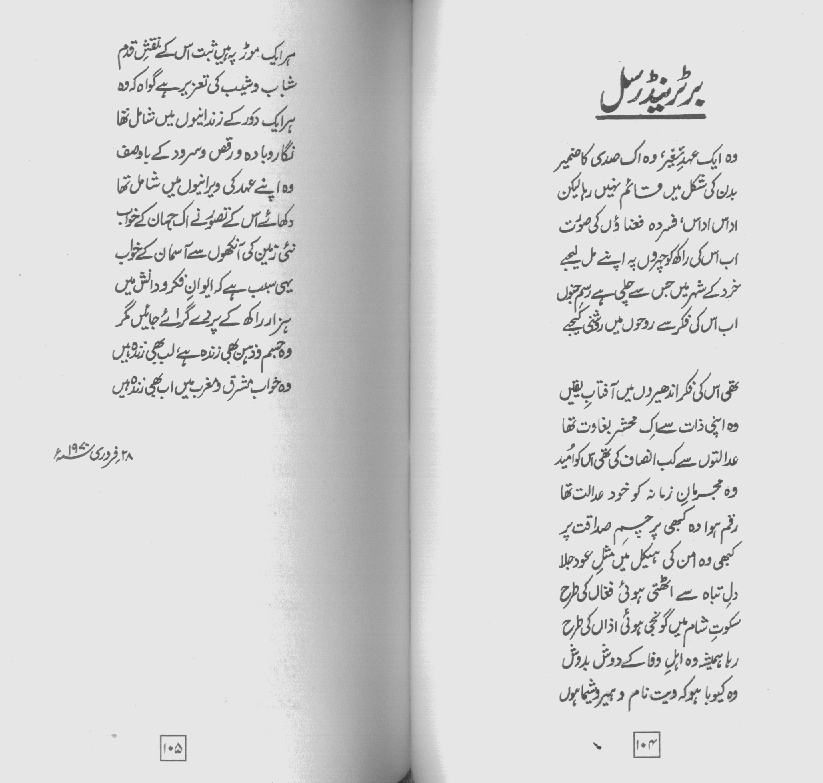 برٹرینڈ رسل
وہ ایک عہدِ تغیّر، وہ اک صدی کا ضمیر
بدن کی شکل میں قائم نہیں رہا لیکن
اداس اداس، فسردہ فضاؤں کی صورت
اب اس کی راکھ کو چہروں پہ اپنے مل لیجے
خرد کے شہر میں جس سے چلی ہے رسمِ جنوں
اب اس کی فکر سے روحوں میں روشنی کیجے
تھی اس کی فکر اندھیروں میں آفتابِ یقیں
وہ اپنی ذات سے اِک محشرِ بغاوت تھا
عدالتوں سے کب انصاف کی تھی اس کو اُمید
وہ مجرمانِ زمانہ کو خود عدالت تھا
رقم ہوا وہ کبھی پرچمِ صداقت پر
کبھی وہ امن کی ہیکل میں مثلِ عود جلا
دلِ تباہ سے اٹھتی ہوئی فغاں کی طرح
سکوتِ شام میں گونجی ہوئی اذاں کی طرح
رہا ہمیشہ وہ اہلِ وفا کے دوش بدوش
وہ کیوبا ہو کہ ویت نام و ہیروشیما ہوں
۱۰۴
ہر ایک موڑ پہ ہیں ثبت اس کے نقشِ قدم
شباب و شیب کی تعزیر ہے گواہ کہ وہ
ہر ایک دَور کے زندانیوں میں شامل تھا
نگار و بادہ و رقص و سرود کے باوصف
وہ اپنے عہد کی ویرانیوں میں شامل تھا
دکھائے اس کے تصوّر نے اک جہان کے خواب
نئی زمین کی آنکھوں سے آسمان کے خواب
یہی سبب ہے کہ ایوانِ فکر و دانش میں
ہزار راکھ کے پردے گرائے جائیں مگر
وہ جسم و ذہن بھی زندہ ہے، لب بھی زندہ ہیں
وہ خواب مشرق و مغرب میں اب بھی زندہ ہیں
۲۸ فروری ۱۹۷۰ء
۱۰۵